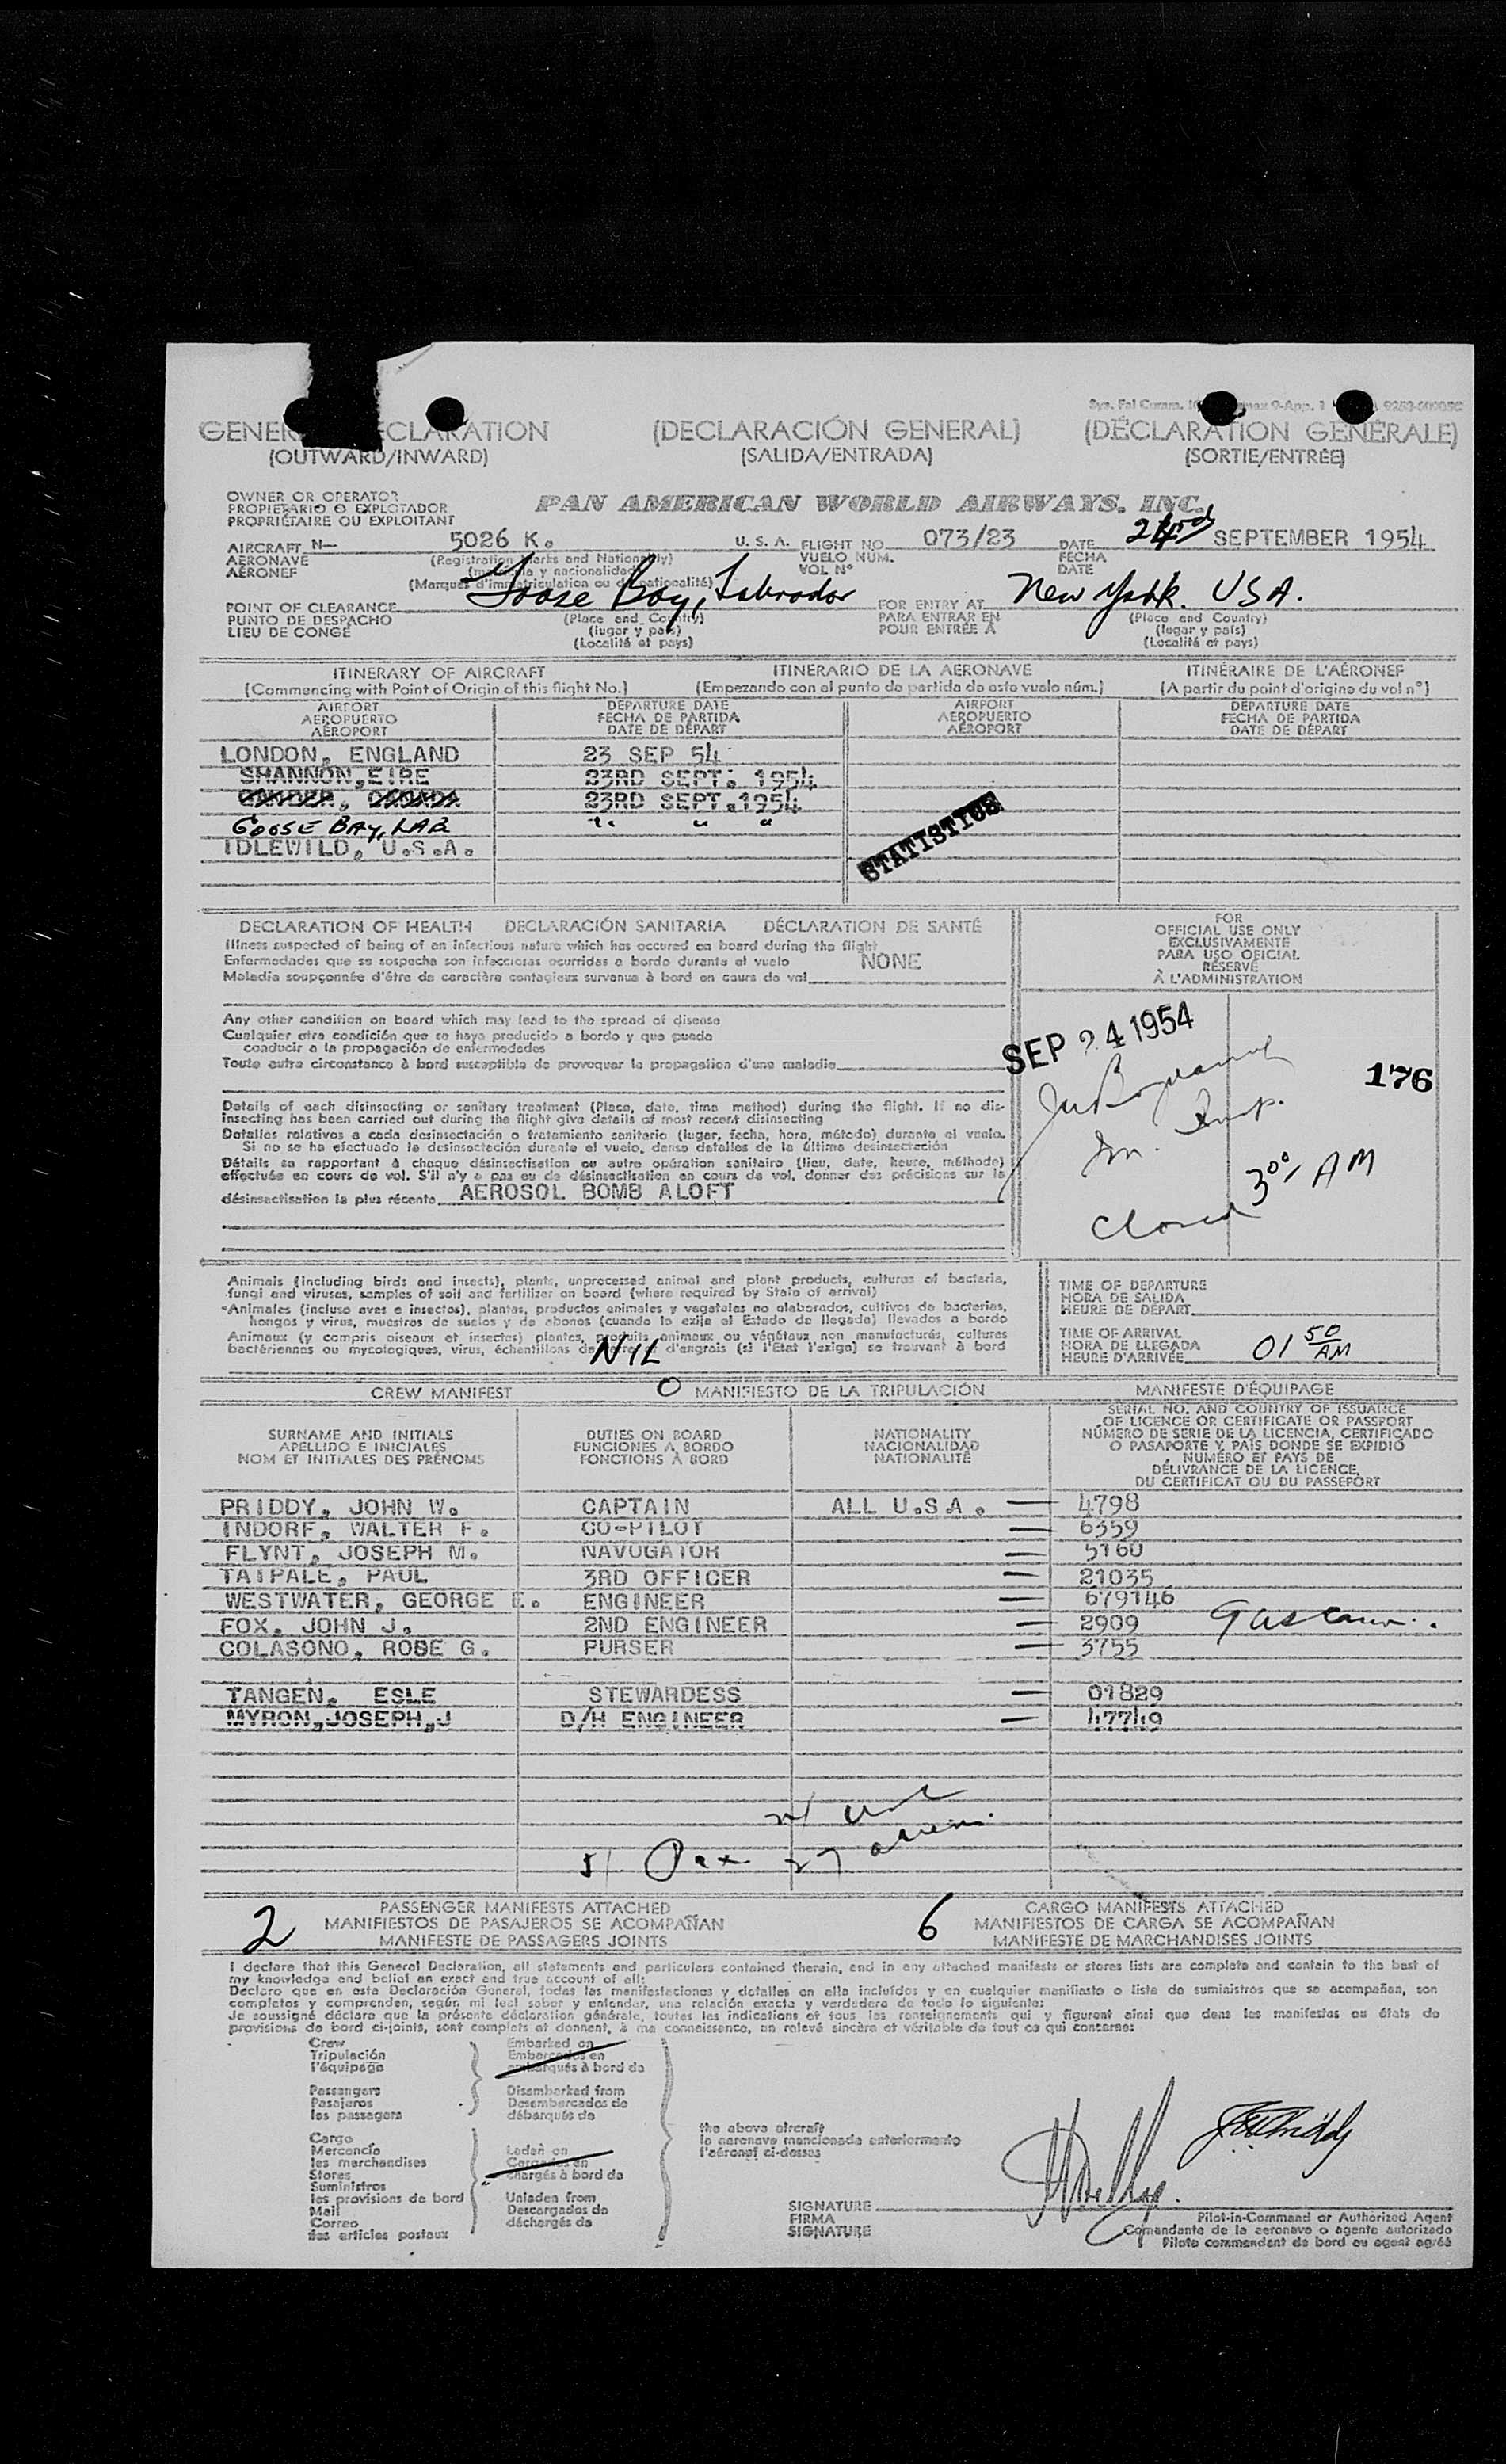 GENER   ECLARATION (DECLARACIÓN GENERAL) (DÉCLARATION GÉNÉRALE)
(OUTWARD/INWARD) (SALIDA/ENTRADA) (SORTIE/ENTRÉE)
OWNER OR OPERATOR
PROPIETARIO O EXPLOTADOR
PROPRIÉTAIRE OU EXPLOITANT
PAN AMERICAN WORLD AIRWAYS, INC.
AIRCRAFT N— 5026 K. U. S. A. FLIGHT NO. 073/23 DATE SEPTEMBER 1954
AERONAVE (Registration Marks and Nationality) VUELO NÚM. FECHA
AÉRONEF (matrícula y nacionalidad) VOL Nº DATE
(Marques d'immatriculation ou de nationalité)
POINT OF CLEARANCE Goose Bay, Labrador FOR ENTRY AT New York. USA.
PUNTO DE DESPACHO (Place and Country) PARA ENTRAR EN (Place and Country)
LIEU DE CONGÉ (lugar y país) POUR ENTRÉE À (lugar y país)
(Localité et pays) (Localité et pays)
ITINERARY OF AIRCRAFT ITINERARIO DE LA AERONAVE ITINÉRAIRE DE L'AÉRONEF
(Commencing with Point of Origin of this flight No.) (Empezando con el punto de partida de este vuelo núm.) (A partir du point d'origine du vol nº)
AIRPORT DEPARTURE DATE AIRPORT DEPARTURE DATE
AEROPUERTO FECHA DE PARTIDA AEROPUERTO FECHA DE PARTIDA
AÉROPORT DATE DE DÉPART AÉROPORT DATE DE DÉPART
LONDON, ENGLAND 23 SEP 54
SHANNON, EIRE 23RD SEPT. 1954
GANDER, CANADA 23RD SEPT. 1954
GOOSE BAY, LAB " " "
IDLEWILD, U.S.A.
STATISTICS
DECLARATION OF HEALTH DECLARACIÓN SANITARIA DÉCLARATION DE SANTÉ
Illness suspected of being of an infectious nature which has occured on board during the flight
Enfermedades que se sospecha son infecciosas ocurridas a bordo durante el vuelo NONE
Maladie soupçonnée d'être de caractère contagieux survenue à bord en cours de vol
FOR
OFFICIAL USE ONLY
EXCLUSIVAMENTE
PARA USO OFICIAL
RÉSERVÉ
À L'ADMINISTRATION
Any other condition on board which may lead to the spread of disease
Cualquier otra condición que se haya producido a bordo y que pueda
conducir a la propagación de enfermedades
Toute autre circonstance à bord susceptible de provoquer la propagation d'une maladie
SEP 24 1954
176
Details of each disinsecting or sanitary treatment (Place, date, time method) during the flight. If no dis-
insecting has been carried out during the flight give details of most recent disinsecting
Detalles relativos a cada desinsectación o tratamiento sanitario (lugar, fecha, hora, método) durante el vuelo.
Si no se ha efectuado la desinsectación durante el vuelo, dense detalles de la última desinsectación
Détails se rapportant à chaque désinsectisation ou autre opération sanitaire (lieu, date, heure, méthode)
effectuée en cours de vol. S'il n'y a pas eu de désinsectisation en cours de vol, donner des précisions sur la
désinsectisation la plus récente AEROSOL BOMB ALOFT
Closed 3 00 AM
Animals (including birds and insects), plants, unprocessed animal and plant products, cultures of bacteria,
fungi and viruses, samples of soil and fertilizer on board (where required by State of arrival)
Animales (incluso aves e insectos), plantas, productos animales y vegetales no elaborados, cultivos de bacterias,
hongos y virus, muestras de suelos y de abonos (cuando lo exija el Estado de llegada) llevados a bordo
Animaux (y compris oiseaux et insectes) plantes, produits animaux ou végétaux non manufacturés, cultures
bactériennes ou mycologiques, virus, échantillons de terre et d'engrais (si l'État l'exige) se trouvant à bord
NIL
TIME OF DEPARTURE
HORA DE SALIDA
HEURE DE DÉPART
TIME OF ARRIVAL
HORA DE LLEGADA
HEURE D'ARRIVÉE 01 50 AM
CREW MANIFEST MANIFIESTO DE LA TRIPULACIÓN MANIFESTE D'ÉQUIPAGE
SURNAME AND INITIALS
APELLIDO E INICIALES
NOM ET INITIALES DES PRÉNOMS
DUTIES ON BOARD
FUNCIONES A BORDO
FONCTIONS À BORD
NATIONALITY
NACIONALIDAD
NATIONALITÉ
SERIAL NO. AND COUNTRY OF ISSUANCE
OF LICENCE OR CERTIFICATE OR PASSPORT
NÚMERO DE SERIE DE LA LICENCIA, CERTIFICADO
O PASAPORTE Y PAÍS DONDE SE EXPIDIÓ
NUMÉRO ET PAYS DE
DÉLIVRANCE DE LA LICENCE,
DU CERTIFICAT OU DU PASSEPORT
PRIDDY, JOHN W. CAPTAIN ALL U.S.A. — 4798
INDORF, WALTER F. CO-PILOT — 6359
FLYNT, JOSEPH M. NAVUGATOR — 5160
TAIPALE, PAUL 3RD OFFICER — 21035
WESTWATER, GEORGE E. ENGINEER — 679146
FOX, JOHN J. 2ND ENGINEER — 2909
COLASONO, ROSE G. PURSER — 3755
TANGEN, ESLE STEWARDESS — 01829
MYRON, JOSEPH, J D/H ENGINEER — 47749
51 Pax 27
2 PASSENGER MANIFESTS ATTACHED 6 CARGO MANIFESTS ATTACHED
MANIFIESTOS DE PASAJEROS SE ACOMPAÑAN MANIFIESTOS DE CARGA SE ACOMPAÑAN
MANIFESTE DE PASSAGERS JOINTS MANIFESTE DE MARCHANDISES JOINTS
I declare that this General Declaration, all statements and particulars contained therein, and in any attached manifests or stores lists are complete and contain to the best of
my knowledge and belief an exact and true account of all:
Declaro que en esta Declaración General, todas las manifestaciones y detalles en ella incluídos y en cualquier manifiesto o lista de suministros que se acompañan, son
completos y comprenden, según mi leal saber y entender, una relación exacta y verdadera de todo lo siguiente:
Je soussigné déclare que la présente déclaration générale, toutes les indications et tous les renseignements qui y figurent ainsi que dans les manifestes ou états de
provisions de bord ci-joints, sont complets et donnent, à ma connaissance, un relevé sincère et véritable de tout ce qui concerne:
Crew Embarked on
Tripulación Embarcados en
l'équipage embarqués à bord de
Passengers Disembarked from
Pasajeros Desembarcados de
les passagers débarqués de
Cargo
Mercancía Laden on
les marchandises Cargados en
Stores chargés à bord de
Suministros
les provisions de bord Unladen from
Mail Descargados de
Correo déchargés de
les articles postaux
the above aircraft
la aeronave mencionada anteriormente
l'aéronef ci-dessus
SIGNATURE
FIRMA
SIGNATURE
Pilot-in-Command or Authorized Agent
Comandante de la aeronave o agente autorizado
Pilote commandant de bord ou agent agréé